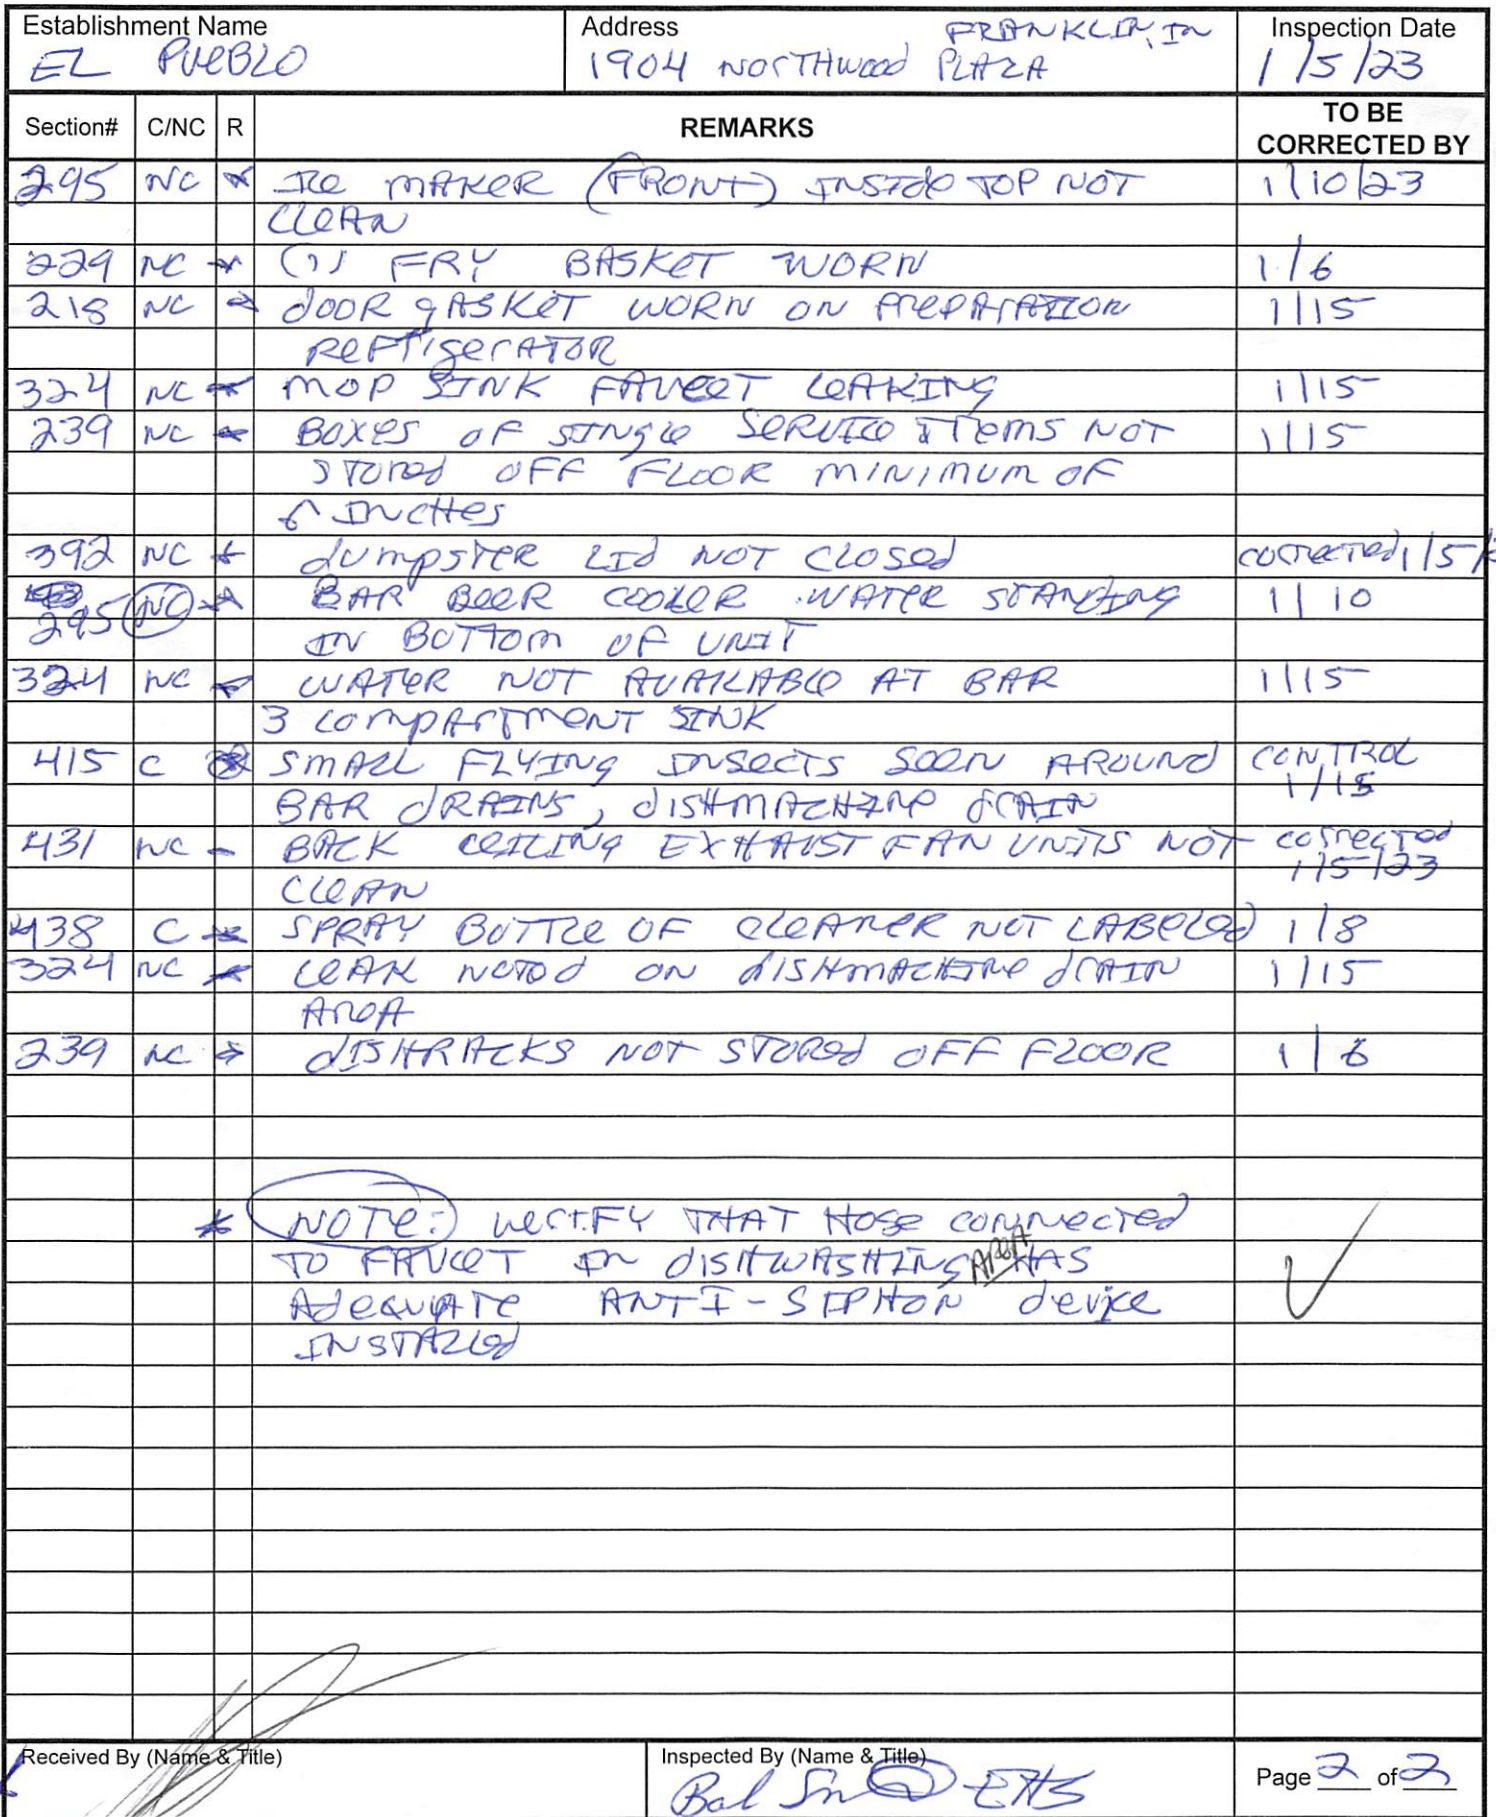 Establishment Name Address FRANKLIN, IN Inspection Date
EL PUEBLO 1904 NORTHWOOD PLAZA 1/5/23
Section# C/NC R REMARKS TO BE CORRECTED BY
295 NC ICE MAKER (FRONT) INSIDE TOP NOT 1/10/23
CLEAN
229 NC (1) FRY BASKET WORN 1/6
218 NC dOOR gASKET WORN ON PREPARATION 1/15
REFRIgERATOR
324 NC MOP SINK FAUCET LEAKING 1/15
239 NC BOXES OF SINGLE SERVICE ITEMS NOT 1/15
STORED OFF FLOOR MINIMUM OF
6 INCHES
392 NC dUMPSTER LId NOT CLOSEd CORRECTED 1/5/
295 NC BAR BEER COOLER WATER STANDING 1/10
IN BOTTOM OF UNIT
324 NC WATER NOT AVAILABLE AT BAR 1/15
3 COMPARTMENT SINK
415 C SMALL FLYING INSECTS SEEN AROUND CONTROL
BAR dRAINS, dISHMACHINE dRAIN 1/15
431 NC BACK CEILING EXHAUST FAN UNITS NOT CORRECTED
CLEAN 1/5/23
438 C SPRAY BOTTLE OF CLEANER NOT LABELEd 1/8
324 NC LEAK NOTED ON dISHMACHINE dRAIN 1/15
AREA
239 NC dISHRACKS NOT STORED OFF FLOOR 1/6
* NOTE: VERIFY THAT HOSE CONNECTED
TO FAUCET IN dISHWASHING AREA HAS
AdEQUATE ANTI-SIPHON dEVICE
INSTALLEd
Received By (Name & Title) Inspected By (Name & Title) Page 2 of 2
EHS